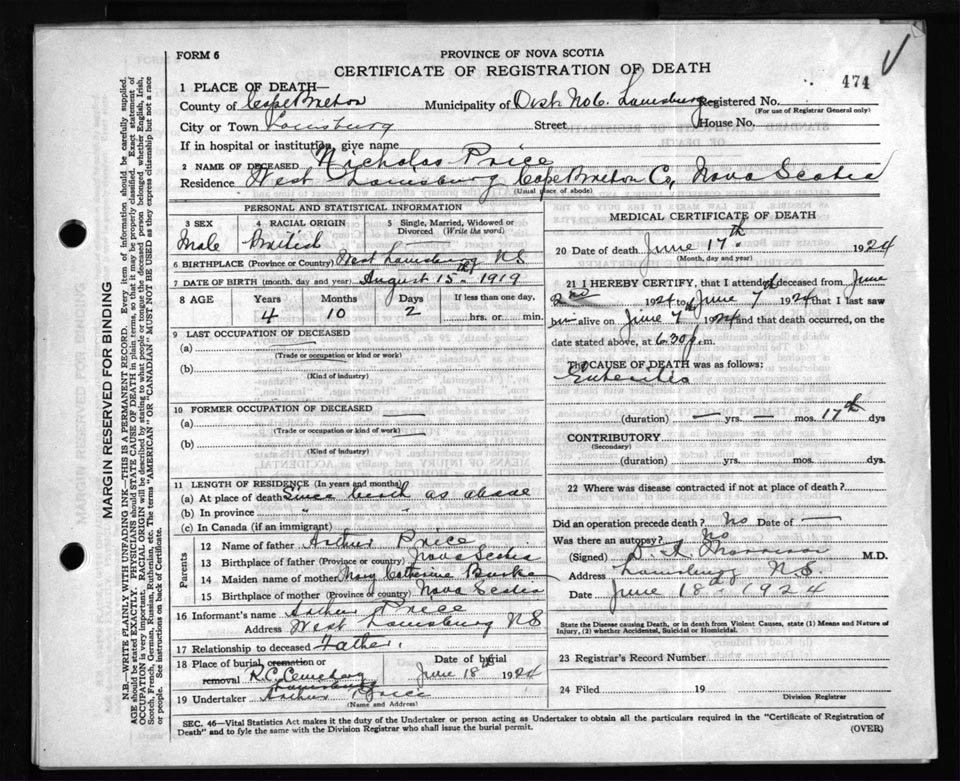 FORM 6
PROVINCE OF NOVA SCOTIA
CERTIFICATE OF REGISTRATION OF DEATH
474
1 PLACE OF DEATH—
County of Cape Breton Municipality of Dist. No 6. Louisburg Registered No.
(For use of Registrar General only)
City or Town Louisburg Street House No.
If in hospital or institution, give name
2 NAME OF DECEASED Nicholas Price
Residence West Louisburg Cape Breton Co, Nova Scotia
(Usual place of abode)
PERSONAL AND STATISTICAL INFORMATION
3 SEX 4 RACIAL ORIGIN 5 Single, Married, Widowed or Divorced (Write the word)
Male British —
6 BIRTHPLACE (Province or Country) West Louisburg NS
7 DATE OF BIRTH (month, day and year) August 15th 1919
8 AGE Years Months Days If less than one day,
4 10 2 hrs. or min.
9 LAST OCCUPATION OF DECEASED
(a)
(Trade or occupation or kind of work)
(b)
(Kind of industry)
10 FORMER OCCUPATION OF DECEASED
(a)
(Trade or occupation or kind of work)
(b)
(Kind of industry)
11 LENGTH OF RESIDENCE (In years and months)
(a) At place of death Since birth as above
(b) In province " "
(c) In Canada (if an immigrant)
Parents
12 Name of father Arthur Price
13 Birthplace of father (Province or country) Nova Scotia
14 Maiden name of mother Mary Catherine Burke
15 Birthplace of mother (Province or country) Nova Scotia
16 Informant's name Arthur Price
Address West Louisburg NS
17 Relationship to deceased Father.
18 Place of burial, cremation or removal R.C. Cemetery Louisburg
Date of burial June 18th 1924
19 Undertaker Arthur Price
(Name and Address)
MEDICAL CERTIFICATE OF DEATH
20 Date of death June 17th 1924
(Month, day and year)
21 I HEREBY CERTIFY, that I attended deceased from June
2nd 1924 to June 7 1924 that I last saw
him alive on June 7th 1924 and that death occurred, on the
date stated above, at 6.30 p.m.
The CAUSE OF DEATH was as follows:
Enteritis
(duration) — yrs. — mos. 17th dys
CONTRIBUTORY
(Secondary)
(duration) yrs. mos. dys.
22 Where was disease contracted if not at place of death?
Did an operation precede death? No Date of —
Was there an autopsy? No
(Signed) D. A. Morrison M.D.
Address Louisburg N.S.
Date June 18th 1924
State the Disease causing Death, or in death from Violent Causes, state (1) Means and Nature of
Injury, (2) whether Accidental, Suicidal or Homicidal.
23 Registrar's Record Number
24 Filed 19
Division Registrar
SEC. 46—Vital Statistics Act makes it the duty of the Undertaker or person acting as Undertaker to obtain all the particulars required in the "Certificate of Registration of
Death" and to fyle the same with the Division Registrar who shall issue the burial permit.
(OVER)
MARGIN RESERVED FOR BINDING
N.B.—WRITE PLAINLY WITH UNFADING INK—THIS IS A PERMANENT RECORD. Every item of information should be carefully supplied.
AGE should be stated EXACTLY. PHYSICIANS should STATE CAUSE OF DEATH in plain terms, so that it may be properly classified. Exact statement of
OCCUPATION is very important. RACIAL ORIGIN will be described by stating to what people or tongue the deceased person belonged whether English, Irish,
Scotch, French, German, Russian, Ruthenian, etc. The terms "AMERICAN" OR "CANADIAN" MUST NOT BE USED as they express citizenship but not a race
or people. See instructions on back of Certificate.